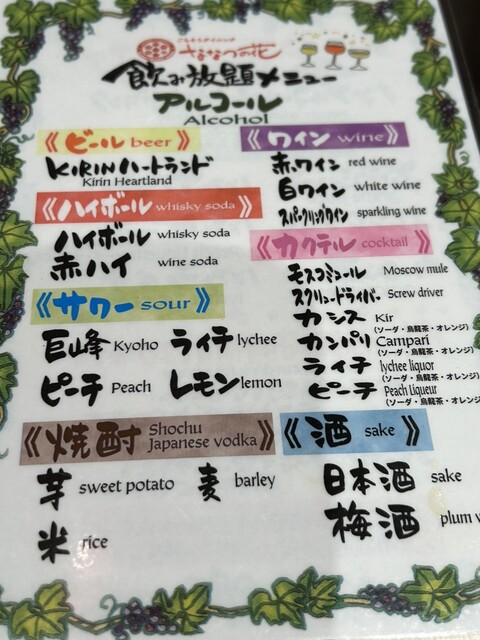 ななつの花
飲み放題メニュー
アルコール
Alcohol
《ビール beer》
KIRINハートランド
Kirin Heartland
《ハイボール whisky soda》
ハイボール whisky soda
赤ハイ wine soda
《サワー sour》
巨峰 Kyoho ライチ lychee
ピーチ Peach レモン lemon
《焼酎 Shochu
Japanese vodka》
芋 sweet potato 麦 barley
米 rice
《ワイン wine》
赤ワイン red wine
白ワイン white wine
スパークリングワイン sparkling wine
《カクテル cocktail》
モスコミュール Moscow mule
スクリュードライバー Screw driver
カシス Kir
(ソーダ・烏龍茶・オレンジ)
カンパリ Campari
(ソーダ・烏龍茶・オレンジ)
ライチ lychee liquor
(ソーダ・烏龍茶・オレンジ)
ピーチ Peach Liqueur
(ソーダ・烏龍茶・オレンジ)
《酒 sake》
日本酒 sake
梅酒 plum w